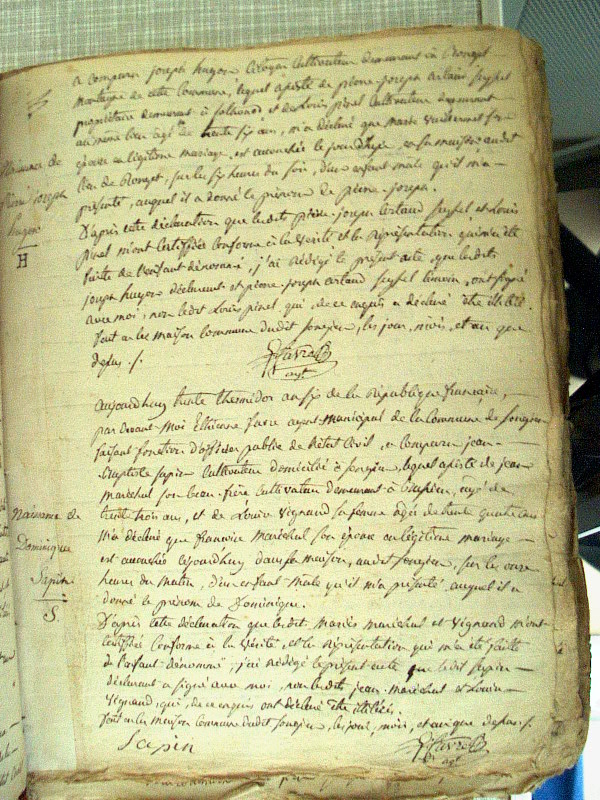 a comparu joseph hugon Citoyen Cultivateur demeurant à
montagne de cette Commune, lequel assisté de pierre joseph artaud seyssel
propriétaire demeurant à et de Louis pinel Cultivateur demeurant
au même lieu agé de trente six ans, m'a déclaré que marie
épouse en légitime mariage, est accouchée le jourdhuy, en sa maison audit
lieu de sur les six heures du soir, d'un enfant male qu'il m'a
présenté, auquel il a donné le prénom de pierre joseph.
D'après cette déclaration que ledit pierre joseph artaud seyssel et Louis
pinel m'ont Certifiée Conforme à la vérité et la représentation qui m'a été
faite de l'enfant dénommé, j'ai rédigé le présent acte, que ledit
joseph hugon déclarant et pierre joseph artaud seyssel témoin, ont signé
avec moi, non ledit Louis pinel, qui, de ce enquis a déclaré être illitéré.
fait en la maison Commune dudit songieu, les jour, mois, et an que
dessus ./.
favre
agt
Naissance de
pierre joseph
hugon
H
aujourdhuy trente thermidor an six de la République francaise,
par devant Moi Etienne favre agent municipal de la Commune de songieu
faisant fonction d'officier public de l'état Civil, a Comparu jean
Baptiste sapin Cultivateur domicilié à songieu, lequel assisté de jean
maréchal son beau-frère Cultivateur demeurant à agé de
trente trois ans, et de Louise Vignand sa femme agée de trente quatre ans
M'a déclaré que françoise maréchal son épouse en légitime mariage
est accouchée cejourdhuy dans sa maison, audit songieu, sur les onze
heures du matin, d'un enfant Male qu'il m'a présenté auquel il a
donné le prénom de Dominique.
D'après cette déclaration que lesdit mariés maréchal et Vignand m'ont
Certifiée Conforme à la vérité, et la représentation qui m'a été faite
de l'enfant dénommé, j'ai rédigé le présent acte que ledit sapin
déclarant a signé avec moi, non lesdits jean maréchal et Louise
Vignand, qui, de ce enquis ont déclaré être illitérés.
fait en la Maison Commune dudit songieu, les jour, mois, et an que dessus ./.
Naissance de
Dominique
Sapin
S.
Sapin
favre
agt